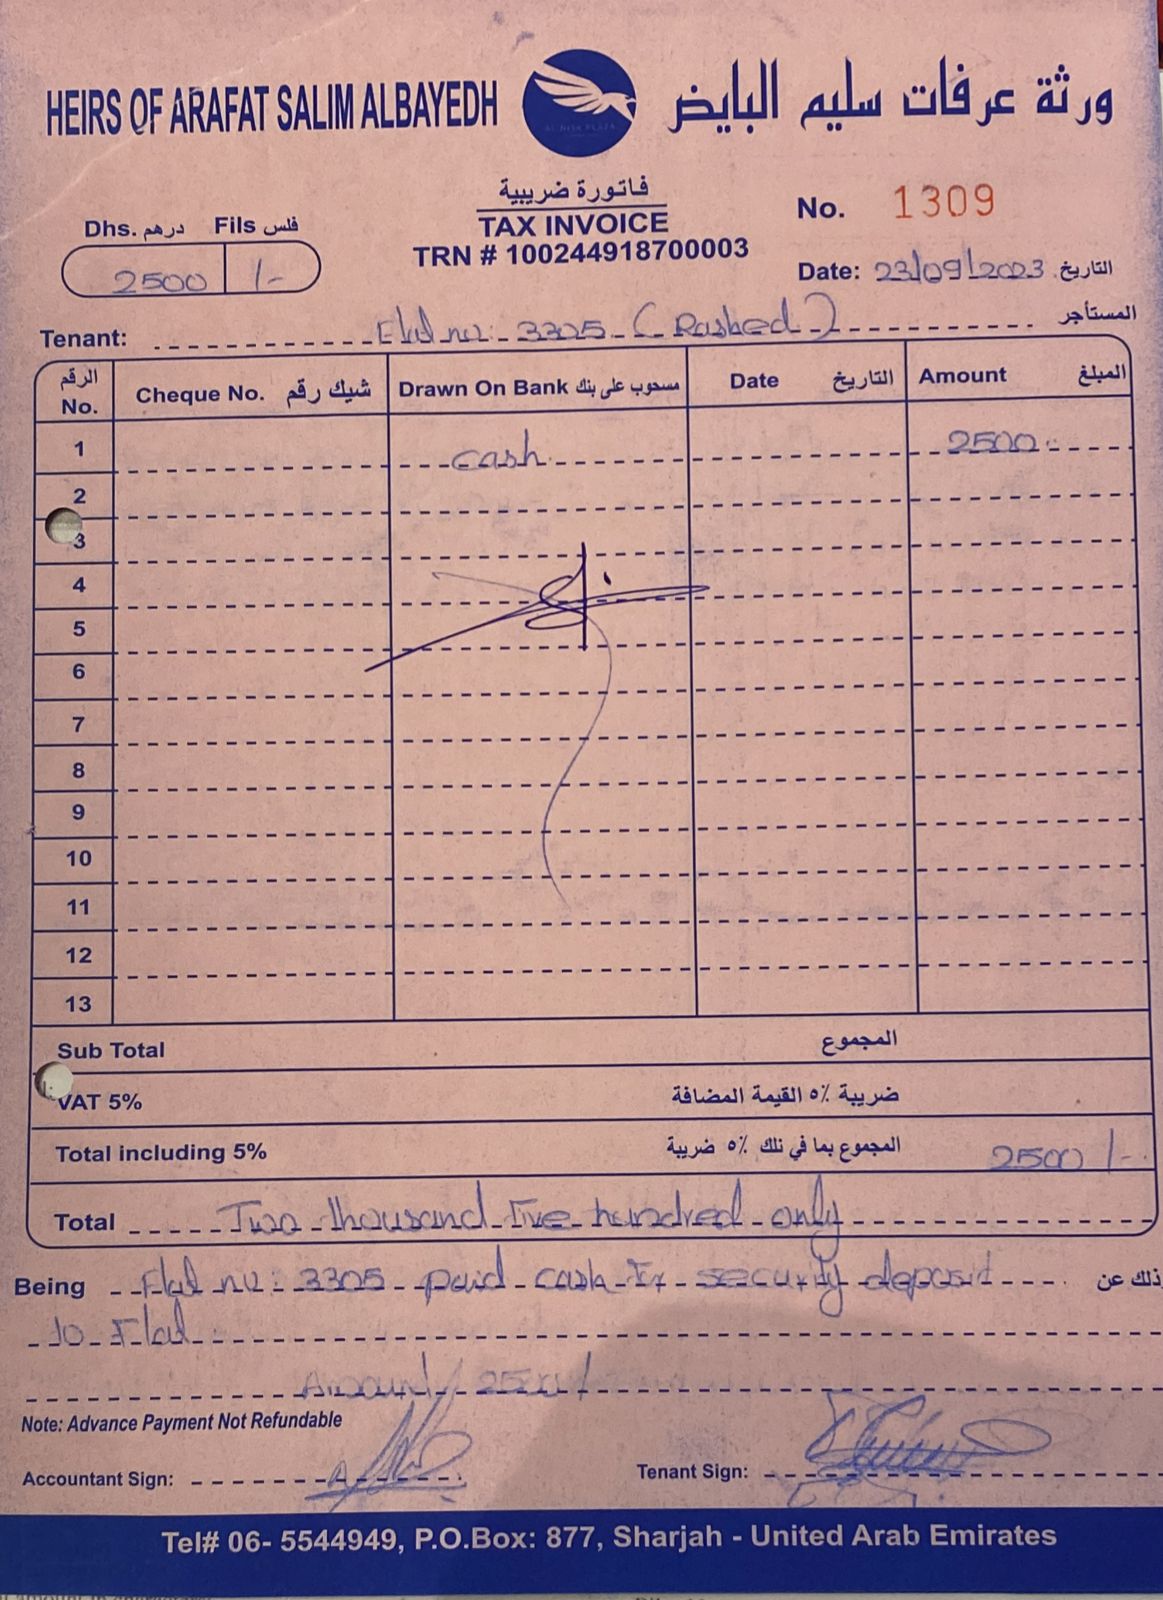 HEIRS OF ARAFAT SALIM ALBAYEDH
ورثة عرفات سليم البايض
فاتورة ضريبية
TAX INVOICE
TRN # 100244918700003
No. 1309
Dhs. درهم Fils فلس
2500 /-
Date: 23/09/2023 التاريخ
Tenant: Flat no: 3305 (Rashed) المستأجر
الرقم No. Cheque No. شيك رقم Drawn On Bank مسحوب على بنك Date التاريخ Amount المبلغ
1 cash 2500
2
3
4
5
6
7
8
9
10
11
12
13
Sub Total المجموع
VAT 5% ضريبة ٥٪ القيمة المضافة
Total including 5% المجموع بما في تلك ٥٪ ضريبة 2500 /-
Total Two thousand Five hundred only
Being Flat no: 3305 paid cash for security deposit ذلك عن
to Flat
Amount 2500/
Note: Advance Payment Not Refundable
Accountant Sign:
Tenant Sign:
Tel# 06- 5544949, P.O.Box: 877, Sharjah - United Arab Emirates